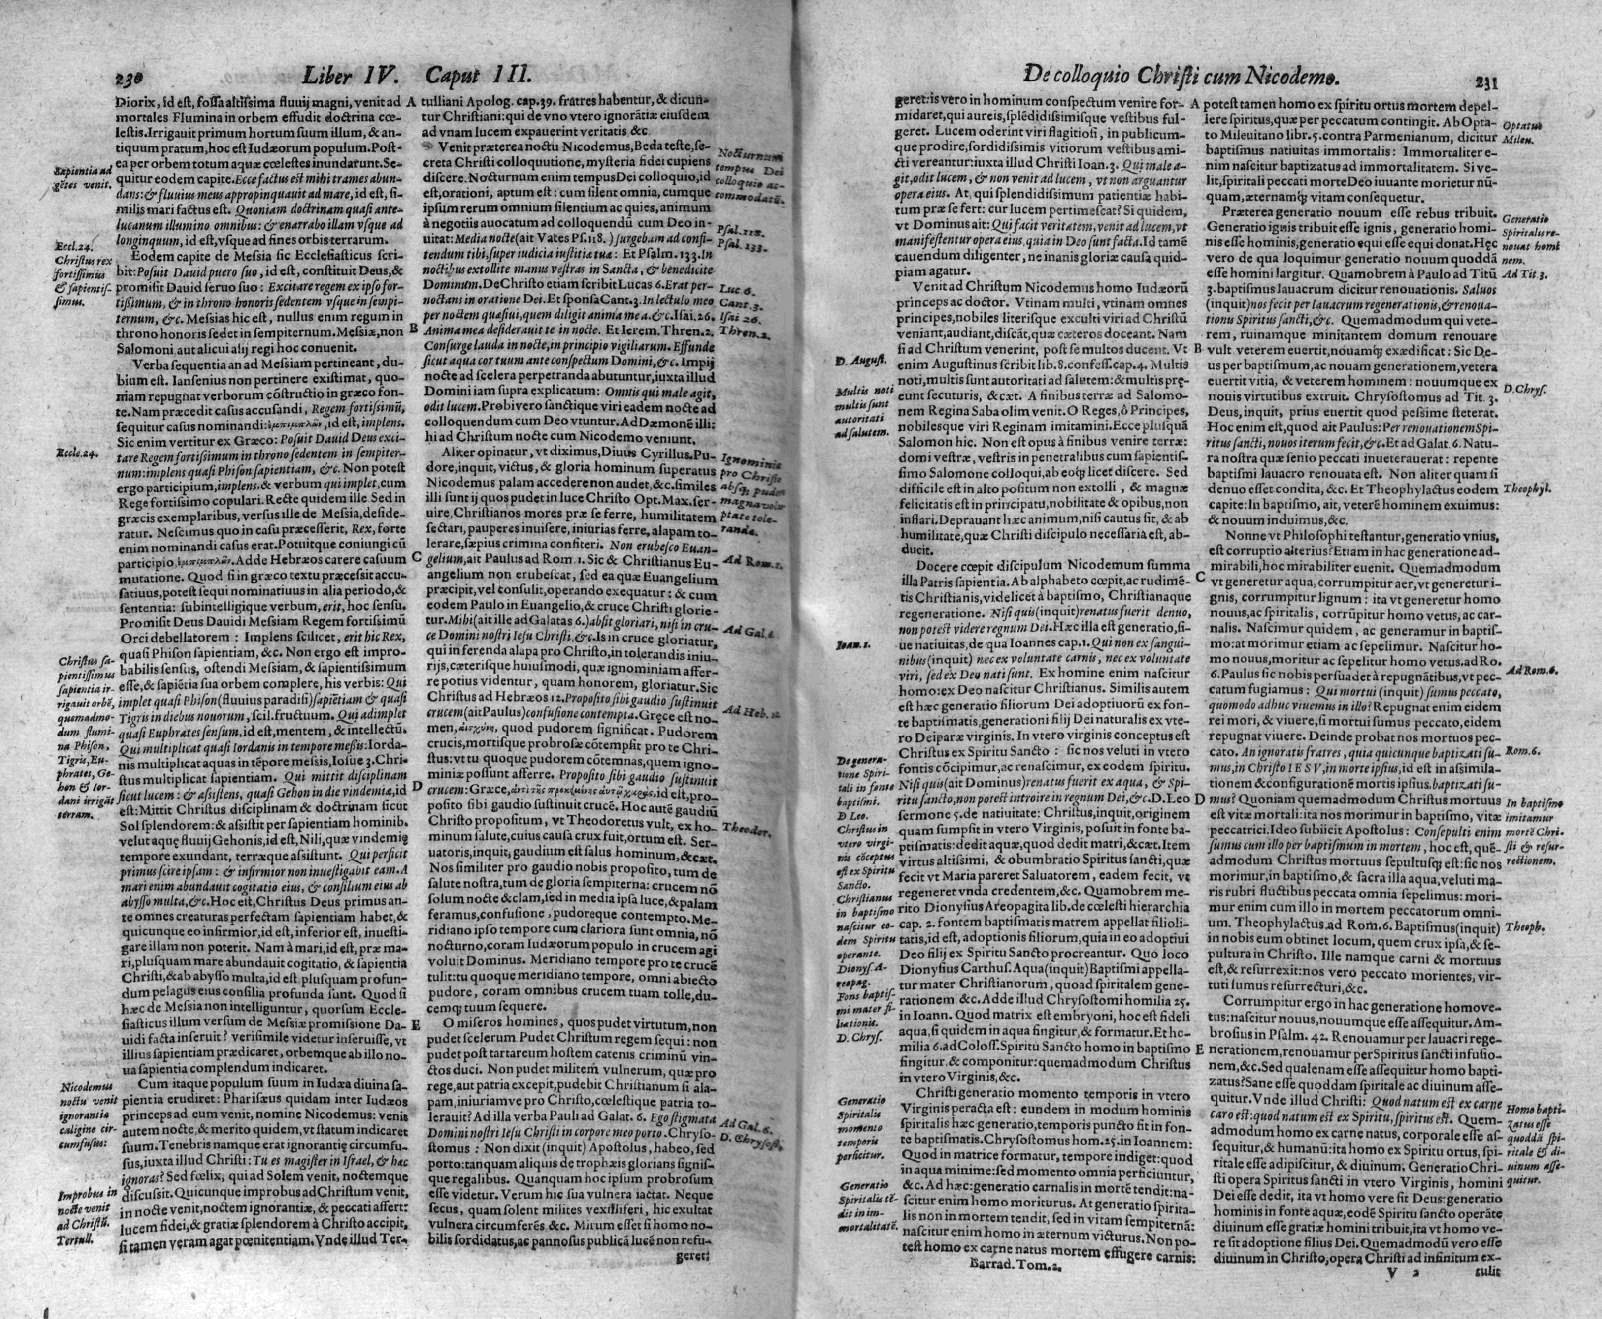 230 Liber IV. Caput III.
Diorix, id est, fossa altissima fluvij magni, venit ad
mortales Flumina in orbem effudit doctrina cœ-
lestis. Irrigauit primum hortum suum illum, & an-
tiquum pratum, hoc est Iudæorum populum. Post-
ea per orbem totum aquæ cœlestes inundarunt. Se-
quitur eodem capite. Ecce factus est mihi trames abun-
dans: & fluuius meus appropinquauit ad mare, id est, si-
milis mari factus est. Quoniam doctrinam quasi ante-
lucanum illumino omnibus: & enarrabo illam vsque ad
longinquum, id est, vsque ad fines orbis terrarum.
Eodem capite de Messia sic Ecclesiasticus scri-
bit: Posuit Dauid puero suo, id est, constituit Deus, &
promisit Dauid seruo suo: Excitare regem ex ipso for-
tissimum, & in throno honoris sedentem vsque in sempi-
ternum, &c. Messias hic est, nullus enim regum in
throno honoris sedet in sempiternum. Messiæ, non
Salomoni, aut alicui alij regi hoc conuenit.
Verba sequentia an ad Messiam pertineant, du-
bium est. Iansenius non pertinere existimat, quo-
niam repugnat verborum cōstructio in græco fon-
te. Nam præcedit casus accusandi, Regem fortissimū,
sequitur casus nominandi: id est, implens.
Sic enim vertitur ex Græco: Posuit Dauid Deus exci-
tare Regem fortissimum in throno sedentem in sempiter-
num: implens quasi Phison sapientiam, &c. Non potest
ergo participium, implens, & verbum qui implet, cum
Rege fortissimo copulari. Recte quidem ille. Sed in
græcis exemplaribus, versus ille de Messia, deside-
ratur. Nescimus quo in casu præcesserit, Rex, forte
enim nominandi casus erat. Potuitque coniungi cū
participio Adde Hebræos carere casuum
mutatione. Quod si in græco textu præcessit accu-
satiuus, potest sequi nominatiuus in alia periodo, &
sententia: subintelligique verbum, erit, hoc sensu.
Promisit Deus Dauidi Messiam Regem fortissimū
Orci debellatorem: Implens scilicet, erit hic Rex,
quasi Phison sapientiam, &c. Non ergo est impro-
babilis sensus, ostendi Messiam, & sapientissimum
esse, & sapiētia sua orbem complere, his verbis: Qui
implet quasi Phison (fluuius paradisi) sapiētiam & quasi
Tigris in diebus nouorum, scil. fructuum. Qui adimplet
quasi Euphrates sensum, id est, mentem, & intellectū.
Qui multiplicat quasi Iordanis in tempore messis: Iorda-
nis multiplicat aquas in tēpore messis, Iosue 3. Chri-
stus multiplicat sapientiam. Qui mittit disciplinam
sicut lucem: & assistens, quasi Gehon in die vindemiæ, id
est: Mittit Christus disciplinam & doctrinam sicut
Sol splendorem: & assistit per sapientiam hominib.
velut aquę fluuij Gehonis, id est, Nili, quæ vindemię
tempore exundant, terræque assistunt. Qui perficit
primus scire ipsam: & infirmior non inuestigabit eam. A
mari enim abundauit cogitatio eius, & consilium eius ab
abysso multa, &c. Hoc est, Christus Deus primus an-
te omnes creaturas perfectam sapientiam habet, &
quicunque eo infirmior, id est, inferior est, inuesti-
gare illam non poterit. Nam à mari, id est, præ ma-
ri, plusquam mare abundauit cogitatio, & sapientia
Christi, & ab abysso multa, id est plusquam profun-
dum pelagus eius consilia profunda sunt. Quod si
hæc de Messia non intelliguntur, quorsum Eccle-
siasticus illum versum de Messiæ promissione Da-
uidi facta inseruit? verisimile videtur inseruisse, vt
illius sapientiam prædicaret, orbemque ab illo no-
ua sapientia complendum indicaret.
Cum itaque populum suum in Iudæa diuina sa-
pientia erudiret: Pharisæus quidam inter Iudæos
princeps ad eum venit, nomine Nicodemus: venit
autem nocte, & merito quidem, vt statum indicaret
suum. Tenebris namque erat ignorantię circumfu-
sus, iuxta illud Christi: Tu es magister in Israel, & hæc
ignoras? Sed fœlix, qui ad Solem venit, noctemque
discussit. Quicunque improbus ad Christum venit,
in nocte venit, noctem ignorantiæ, & peccati affert:
lucem fidei, & gratiæ splendorem à Christo accipit,
si tamen veram agat pœnitentiam. Vnde illud Ter-
Sapientia ad
gētes venit.
Eccl. 24.
Christus rex
fortissimus
& sapientis-
simus.
Eccle. 24.
Christus sa-
pientissimus
sapientia ir-
rigauit orbē,
quemadmo-
dum flumi-
na Phison,
Tigris, Eu-
phrates, Ge-
hon & Ior-
dani irrigāt
terram.
Nicodemus
noctu venit
ignorantia
caligine cir-
cumfusus:
Improbus in
nocte venit
ad Christū.
Tertull.
A
B
C
D
E
tulliani Apolog. cap. 39. fratres habentur, & dicun-
tur Christiani: qui de vno vtero ignorātiæ eiusdem
ad vnam lucem expauerint veritatis &c.
Venit præterea noctu Nicodemus, Beda teste, se-
creta Christi colloquutione, mysteria fidei cupiens
discere. Nocturnum enim tempus Dei colloquio, id
est, orationi, aptum est: cum silent omnia, cumque
ipsum rerum omnium silentium ac quies, animum
à negotiis auocatum ad colloquendū cum Deo in-
uitat: Media nocte (ait Vates Ps. 118.) surgebam ad confi-
tendum tibi, super iudicia iustitiæ tuæ: Et Psalm. 133. In
noctibus extollite manus vestras in Sancta, & benedicite
Dominum. De Christo etiam scribit Lucas 6. Erat per-
noctans in oratione Dei. Et sponsa Cant. 3. In lectulo meo
per noctem quæsiui, quem diligit anima mea. &c. Isai. 26.
Anima mea desiderauit te in nocte. Et Ierem. Thren. 2.
Consurge lauda in nocte, in principio vigiliarum. Effunde
sicut aqua cor tuum ante conspectum Domini, &c. Impij
nocte ad scelera perpetranda abutuntur, iuxta illud
Domini iam supra explicatum: Omnis qui male agit,
odit lucem. Probi vero sanctique viri eadem nocte ad
colloquendum cum Deo vtuntur. Ad Dæmonē illi:
hi ad Christum nocte cum Nicodemo veniunt.
Aliter opinatur, vt diximus, Diuus Cyrillus. Pu-
dore, inquit, victus, & gloria hominum superatus
Nicodemus palam accedere non audet, &c. similes
illi sunt ij quos pudet in luce Christo Opt. Max. ser-
uire, Christianos mores præ se ferre, humilitatem
sectari, pauperes inuisere, iniurias ferre, alapam to-
lerare, sæpius crimina confiteri. Non erubesco Euan-
gelium, ait Paulus ad Rom. 1. Sic & Christianus Eu-
angelium non erubescat, sed ea quæ Euangelium
præcipit, vel consulit, operando exequatur: & cum
eodem Paulo in Euangelio, & cruce Christi glorie-
tur. Mihi (ait ille ad Galatas 6.) absit gloriari, nisi in cru-
ce Domini nostri Iesu Christi, &c. Is in cruce gloriatur,
qui in ferenda alapa pro Christo, in tolerandis iniu-
rijs, cæterisque huiusmodi, quæ ignominiam affer-
re potius videntur, quam honorem, gloriatur. Sic
Christus ad Hebræos 12. Proposito sibi gaudio sustinuit
crucem (ait Paulus) confusione contempta. Gręce est no-
men, quod pudorem significat. Pudorem
crucis, mortisque probrosæ cōtempsit pro te Chri-
stus: vt tu quoque pudorem cōtemnas, quem igno-
miniæ possunt afferre. Proposito sibi gaudio sustinuit
crucem: Græce, id est, pro-
posito sibi gaudio sustinuit crucē. Hoc autē gaudiū
Christo propositum, vt Theodoretus vult, ex ho-
minum salute, cuius causa crux fuit, ortum est. Ser-
uatoris, inquit, gaudium est salus hominum, &cæt.
Nos similiter pro gaudio nobis proposito, tum de
salute nostra, tum de gloria sempiterna: crucem nō
solum nocte & clam, sed in media ipsa luce, & palam
feramus, confusione, pudoreque contempto. Me-
ridiano ipso tempore cum clariora sunt omnia, nō
nocturno, coram Iudæorum populo in crucem agi
voluit Dominus. Meridiano tempore pro te crucē
tulit: tu quoque meridiano tempore, omni abiecto
pudore, coram omnibus crucem tuam tolle, du-
cemq; tuum sequere.
O miseros homines, quos pudet virtutum, non
pudet scelerum Pudet Christum regem sequi: non
pudet post tartareum hostem catenis criminū vin-
ctos duci. Non pudet militem vulnerum, quæ pro
rege, aut patria excepit, pudebit Christianum si ala-
pam, iniuriamve pro Christo, cœlestique patria to-
lerauit? Ad illa verba Pauli ad Galat. 6. Ego stigmata
Domini nostri Iesu Christi in corpore meo porto. Chryso-
stomus: Non dixit (inquit) Apostolus, habeo, sed
porto: tanquam aliquis de trophæis glorians signis-
que regalibus. Quanquam hoc ipsum probrosum
esse videtur. Verum hic sua vulnera iactat. Neque
secus, quam solent milites vexilliferi, hic exultat
vulnera circumferēs, &c. Mirum esset si homo no-
bilis sordidatus, ac pannosus publicā lucē non refu-
geret:
Nocturnum
tempus Dei
colloquio ac-
commodatū.
Psal. 118.
Psal. 133.
Luc 6.
Cant. 3.
Isai 26.
Thren. 2.
Ignominia
pro Christo
absq; pudore
magna volu-
ptate tole-
randa.
Ad Rom. 1.
Ad Gal. 6.
Ad Heb. 12.
Theodor.
Ad Gal. 6.
D. Chrysost.
De colloquio Christi cum Nicodemo. 231
geret: is vero in hominum conspectum venire for-
midaret, qui aureis, splēdidissimisque vestibus ful-
geret. Lucem oderint viri flagitiosi, in publicum-
que prodire, sordidissimis vitiorum vestibus ami-
cti vereantur: iuxta illud Christi Ioan. 3. Qui male a-
git, odit lucem, & non venit ad lucem, vt non arguantur
opera eius. At, qui splendidissimum patientiæ habi-
tum præ se fert: cur lucem pertimescat? Si quidem,
vt Dominus ait: Qui facit veritatem, venit ad lucem, vt
manifestentur opera eius, quia in Deo sunt facta. Id tamē
cauendum diligenter, ne inanis gloriæ causa quid-
piam agatur.
Venit ad Christum Nicodemus homo Iudæorū
princeps ac doctor. Vtinam multi, vtinam omnes
principes, nobiles literisque exculti viri ad Christū
veniant, audiant, discāt, quæ cæteros doceant. Nam
si ad Christum venerint, post se multos ducent. Vt
enim Augustinus scribit lib. 8. confess. cap. 4. Multis
noti, multis sunt autoritati ad salutem: & multis prę-
eunt secuturis, &cæt. A finibus terræ ad Salomo-
nem Regina Saba olim venit. O Reges, ô Principes,
nobilesque viri Reginam imitamini. Ecce plusquā
Salomon hic. Non est opus à finibus venire terræ:
domi vestræ, vestris in penetralibus cum sapientis-
simo Salomone colloqui, ab eoq; licet discere. Sed
difficile est in alto positum non extolli, & magnæ
felicitatis est in principatu, nobilitate & opibus, non
inflari. Deprauant hæc animum, nisi cautus sit, & ab
humilitatē, quæ Christi discipulo necessaria est, ab-
ducit.
Docere cœpit discipulum Nicodemum summa
illa Patris sapientia. Ab alphabeto cœpit, ac rudimē-
tis Christianis, videlicet à baptismo, Christianaque
regeneratione. Nisi quis (inquit) renatus fuerit denuo,
non potest videre regnum Dei. Hæc illa est generatio, si-
ue natiuitas, de qua Ioannes cap. 1. Qui non ex sangui-
nibus (inquit) nec ex voluntate carnis, nec ex voluntate
viri, sed ex Deo nati sunt. Ex homine enim nascitur
homo: ex Deo nascitur Christianus. Similis autem
est hæc generatio filiorum Dei adoptiuorū ex fon-
te baptismatis, generationi filij Dei naturalis ex vte-
ro Deiparæ virginis. In vtero virginis conceptus est
Christus ex Spiritu Sancto: sic nos veluti in vtero
fontis cōcipimur, ac renascimur, ex eodem spiritu.
Nisi quis (ait Dominus) renatus fuerit ex aqua, & Spi-
ritu sancto, non potest introire in regnum Dei, &c. D. Leo
sermone 5. de natiuitate: Christus, inquit, originem
quam sumpsit in vtero Virginis, posuit in fonte ba-
ptismatis: dedit aquæ, quod dedit matri, &cæt. Item
virtus altissimi, & obumbratio Spiritus sancti, quæ
fecit vt Maria pareret Saluatorem, eadem fecit, vt
regeneret vnda credentem, &c. Quamobrem me-
rito Dionysius Areopagita lib. de cœlesti hierarchia
cap. 2. fontem baptismatis matrem appellat filioli-
tatis, id est, adoptionis filiorum, quia in eo adoptiui
Deo filij ex Spiritu Sancto procreantur. Quo loco
Dionysius Carthus. Aqua (inquit) Baptismi appella-
tur mater Christianorum, quoad spiritalem gene-
rationem &c. Adde illud Chrysostomi homilia 25.
in Ioann. Quod matrix est embryoni, hoc est fideli
aqua, si quidem in aqua fingitur, & formatur. Et ho-
milia 6. ad Coloss. Spiritu Sancto homo in baptismo
fingitur, & componitur: quemadmodum Christus
in vtero Virginis, &c.
Christi generatio momento temporis in vtero
Virginis peracta est: eundem in modum hominis
spiritalis hæc generatio, temporis puncto fit in fon-
te baptismatis. Chrysostomus hom. 25. in Ioannem:
Quod in matrice formatur, tempore indiget: quod
in aqua minime: sed momento omnia perficiuntur,
&c. Ad hæc: generatio carnalis in mortē tendit: na-
scitur enim homo moriturus. At generatio spirita-
lis non in mortem tendit, sed in vitam sempiternā:
nascitur enim homo in æternum victurus. Non po-
test homo ex carne natus mortem effugere carnis:
Barrad. Tom. 2.
D. August.
Multis noti
multis sunt
autoritati
ad salutem.
Ioan. 1.
De genera-
tione Spiri-
tali in fonte
baptismi.
D Leo.
Christus in
vtero virgi-
nis cōceptus
est ex Spiritu
Sancto.
Christianus
in baptismo
nascitur eo-
dem Spiritu
operante.
Dionys. A-
reopag.
Fons baptis-
mi mater fi-
liationis.
D. Chrys.
Generatio
Spiritalis
momento
temporis
perficitur.
Generatio
Spiritalis tē-
dit in im-
mortalitatē.
A
B
C
D
E
potest tamen homo ex spiritu ortus mortem depel-
lere spiritus, quæ per peccatum contingit. Ab Opta-
to Mileuitano libr. 5. contra Parmenianum, dicitur
baptismus natiuitas immortalis: Immortaliter e-
nim nascitur baptizatus ad immortalitatem. Si ve-
lit, spiritali peccati morte Deo iuuante morietur nū-
quam, æternamq; vitam consequetur.
Præterea generatio nouum esse rebus tribuit.
Generatio ignis tribuit esse ignis, generatio homi-
nis esse hominis, generatio equi esse equi donat. Hęc
vero de qua loquimur generatio nouum quoddā
esse homini largitur. Quamobrem à Paulo ad Titū
3. baptismus lauacrum dicitur renouationis. Saluos
(inquit) nos fecit per lauacrum regenerationis, & renoua-
tionu Spiritus sancti, &c. Quemadmodum qui vete-
rem, ruinamque minitantem domum renouare
vult veterem euertit, nouamq; exædificat: Sic De-
us per baptismum, ac nouam generationem, vetera
euertit vitia, & veterem hominem: nouumque ex
nouis virtutibus extruit. Chrysostomus ad Tit. 3.
Deus, inquit, prius euertit quod pessime steterat.
Hoc enim est, quod ait Paulus: Per renouationem Spi-
ritus sancti, nouos iterum fecit, &c. Et ad Galat 6. Natu-
ra nostra quæ senio peccati inueterauerat: repente
baptismi lauacro renouata est. Non aliter quam si
denuo esset condita, &c. Et Theophylactus eodem
capite: In baptismo, ait, veterē hominem exuimus:
& nouum induimus, &c.
Nonne vt Philosophi testantur, generatio vnius,
est corruptio alterius? Etiam in hac generatione ad-
mirabili, hoc mirabiliter euenit. Quemadmodum
vt generetur aqua, corrumpitur aer, vt generetur i-
gnis, corrumpitur lignum: ita vt generetur homo
nouus, ac spiritalis, corrūpitur homo vetus, ac car-
nalis. Nascimur quidem, ac generamur in baptis-
mo: at morimur etiam ac sepelimur. Nascitur ho-
mo nouus, moritur ac sepelitur homo vetus. ad Ro.
6. Paulus sic nobis persuadet à repugnātibus, vt pec-
catum fugiamus: Qui mortui (inquit) sumus peccato,
quomodo adhuc viuemus in illo? Repugnat enim eidem
rei mori, & viuere, si mortui sumus peccato, eidem
repugnat viuere. Deinde probat nos mortuos pec-
cato. An ignoratis fratres, quia quicunque baptizati su-
mus, in Christo IESV, in morte ipsius, id est in assimila-
tionem & configurationē mortis ipsius. baptizati su-
mus? Quoniam quemadmodum Christus mortuus
est vitæ mortali: ita nos morimur in baptismo, vitæ
peccatrici. Ideo subiicit Apostolus: Consepulti enim
sumus cum illo per baptismum in mortem, hoc est, quē-
admodum Christus mortuus sepultusq; est: sic nos
morimur, in baptismo, & sacra illa aqua, veluti ma-
ris rubri fluctibus peccata omnia sepelimus: mori-
mur enim cum illo in mortem peccatorum omni-
um. Theophylactus ad Rom. 6. Baptismus (inquit)
in nobis eum obtinet locum, quem crux ipsa, & se-
pultura in Christo. Ille namque carni & mortuus
est, & resurrexit: nos vero peccato morientes, vir-
tuti sumus resurrecturi, &c.
Corrumpitur ergo in hac generatione homo ve-
tus: nascitur nouus, nouumque esse assequitur. Am-
brosius in Psalm. 42. Renouamur per lauacri rege-
nerationem, renouamur per Spiritus sancti infusio-
nem, &c. Sed qualenam esse assequitur homo bapti-
zatus? Sane esse quoddam spiritale ac diuinum asse-
quitur. Vnde illud Christi: Quod natum est ex carne
caro est: quod natum est ex Spiritu, spiritus est. Quem-
admodum homo ex carne natus, corporale esse as-
sequitur, & humanū: ita homo ex Spiritu ortus, spi-
ritale esse adipiscitur, & diuinum. Generatio Chri-
sti opera Spiritus sancti in vtero Virginis, homini
Dei esse dedit, ita vt homo vere sit Deus: generatio
hominis in fonte aquæ, eodē Spiritu sancto operāte
diuinum esse gratiæ homini tribuit, ita vt homo ve-
re sit adoptione filius Dei. Quemadmodū vero esse
diuinum in Christo, opera Christi ad infinitum ex-
V 2 tulit
Optatus
Mileu.
Generatio
Spiritalis re-
nouat homi
nem.
Ad Tit 3.
D. Chrys.
Theophyl.
Ad Rom. 6.
Rom. 6.
In baptismo
imitamur
mortē Chri-
sti & resur-
rectionem.
Theoph.
Homo bapti-
zatus esse
quoddā spi-
ritale & di-
uinum asse-
quitur.